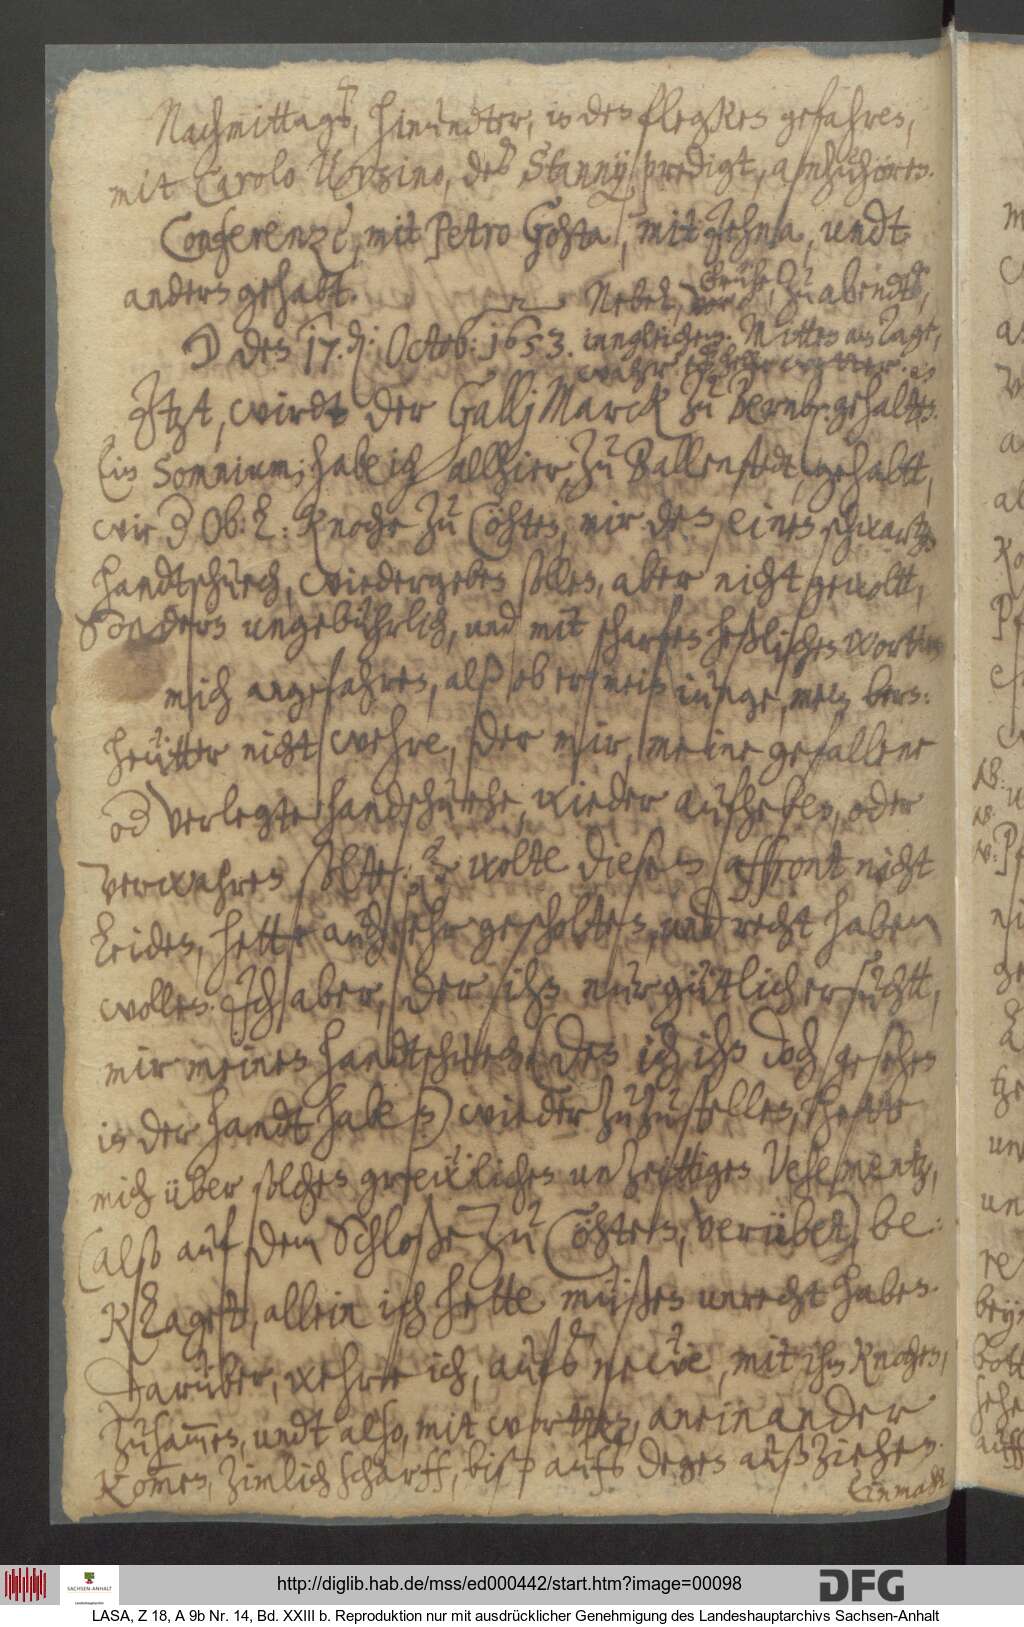 Nachmittags, hinundter, in den flegken gefahren,
mit Carolo Ursino, des Stannij predigt, anzuhören.
Conferentz, mit Petro Gohta, mit Jehna, undt
anders gehabt.
Nebel, vor, zu abendts,
☽ den 17. Octob: 1653. inngleichen. Mitten am Tage,
wahr wetter.
Itzt, wirdt der Gallj Marck zu Bernb: gehalten.
Ein Somnium; habe ich allhier, zu Ballenstedt, gehabtt,
wie der Ob: L: Knoche zu Cöhten, mir den einen schwartzen
handtschuch, wiedergeben sollen, aber nicht gewoltt,
Sondern ungebührlich, und mit scharfen heßlichen worten
mich angefahren, alß ob er mein iunge, mein bern:
heüter nicht wehre, der mir, meine gefallene
oder verlegte handschuche, wieder aufheben, oder
verwahren solte: wolte diesen affront nicht
leiden, hette auch sehr gescholten, und recht haben
wollen. Ich aber, der ihn nur gütlich ersuchtt,
mir meinen handtschuch (den ich ihn doch gesehen
in der handt haben) wieder zuzustellen, hette
mich über solchen grewlichen unzeittigen Vehementz,
(alß auf dem Schloße zu Cöhten, verübet) be:
klaget, allein ich hette müßen unrecht haben.
Darüber, wehre ich, aufs neẅe, mit ihm Knochen,
zusammen, undt also, mit worten, aneinander
kommen, zimlich scharff, biß aufs degen außziehen.
Einmahl
http://diglib.hab.de/mss/ed000442/start.htm?image=00098
SACHSEN-ANHALT
Landeshauptarchiv
DFG
LASA, Z 18, A 9b Nr. 14, Bd. XXIII b. Reproduktion nur mit ausdrücklicher Genehmigung des Landeshauptarchivs Sachsen-Anhalt